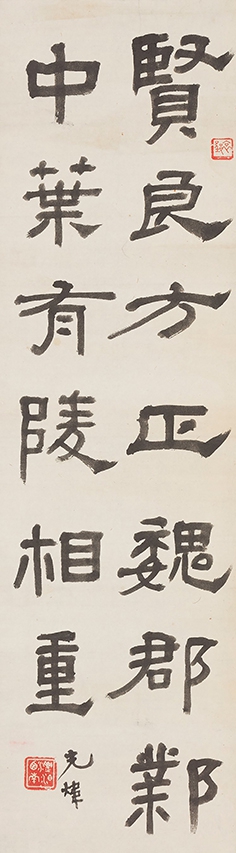 賢良方正魏郡鄴
中葉有陵相重
光煒